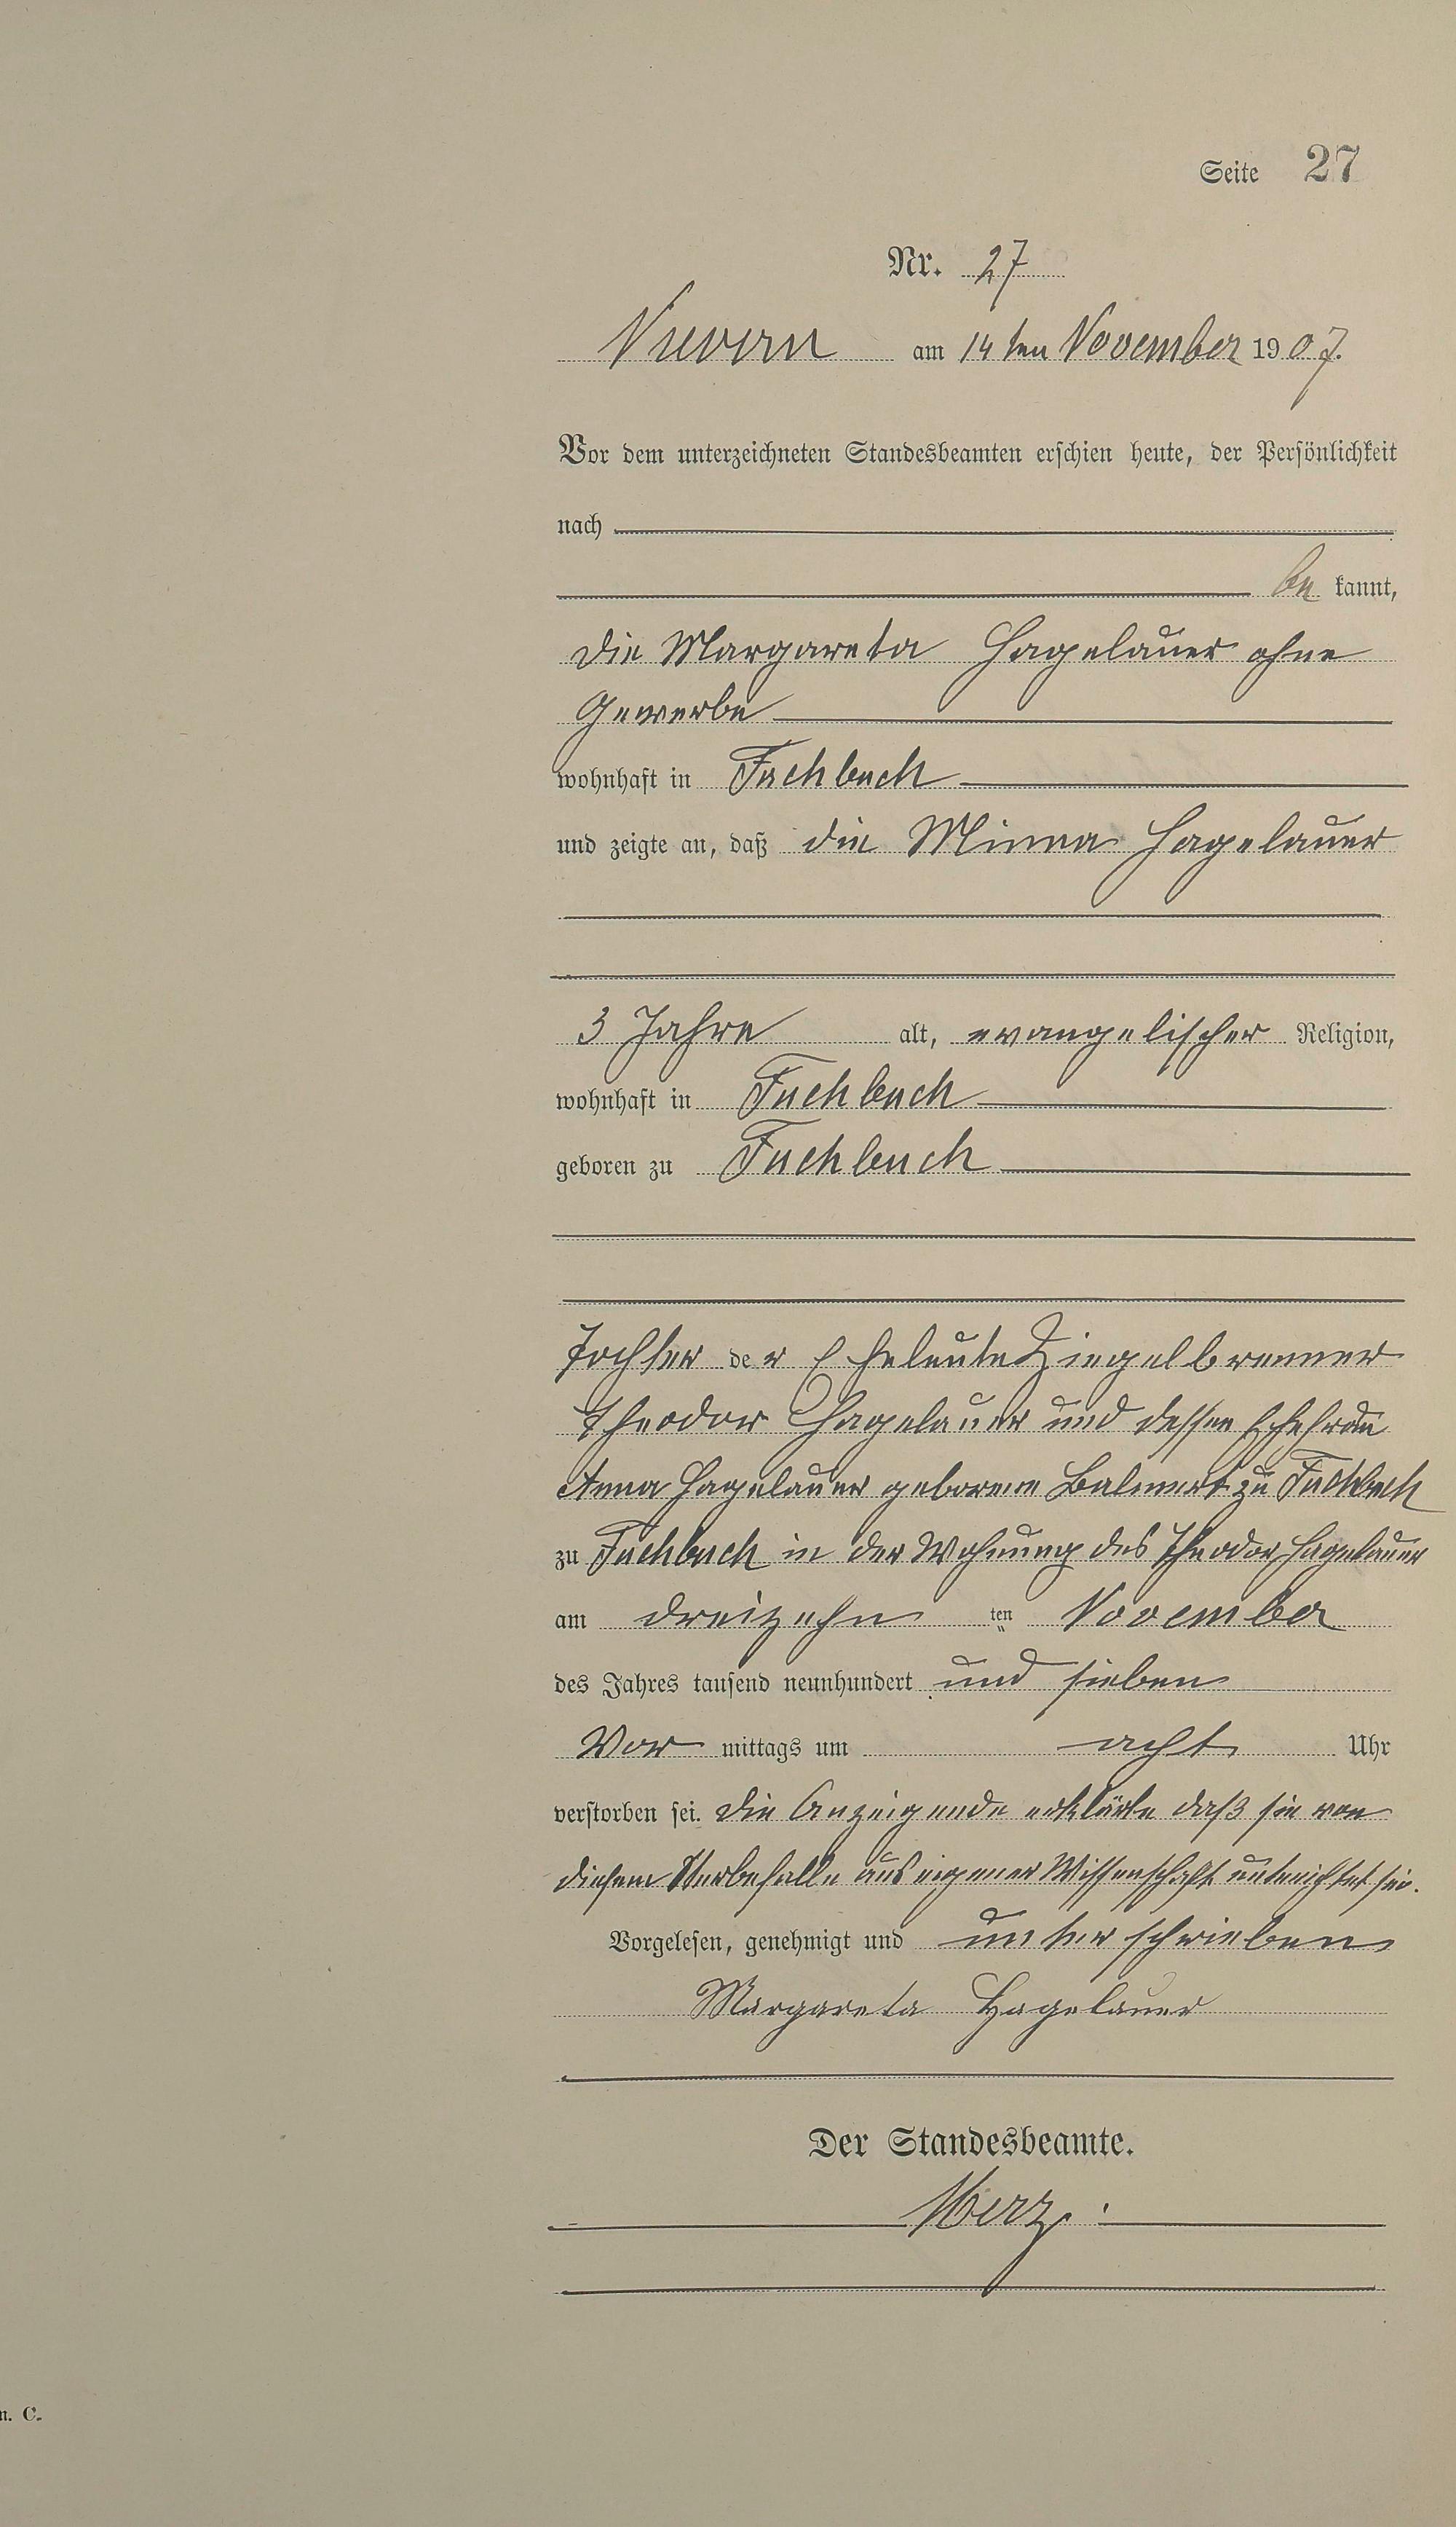 Seite 27
Nr. 27
Nievern am 14ten November 1907.
Vor dem unterzeichneten Standesbeamten erschien heute, der Persönlichkeit
nach
be kannt,
die Margareta Hagelauer ohne
Gewerbe
wohnhaft in Fachbach
und zeigte an, daß die Minna Hagelauer
3 Jahre alt, evangelischer Religion,
wohnhaft in Fachbach
geboren zu Fachbach
Tochter der Eheleute Ziegelbrenner
Theodor Hagelauer und dessen Ehefrau
Anna Hagelauer geborene zu Fachbach
zu Fachbach in der Wohnung des Theodor Hagelauer
am dreizehn ten November
des Jahres tausend neunhundert und sieben
Vor mittags um acht Uhr
verstorben sei. Die Anzeigende erklärte daß sie von
diesem Sterbefalle aus eigener Wissenschaft unterrichtet sei.
Vorgelesen, genehmigt und unterschrieben
Margareta Hagelauer
Der Standesbeamte.
Merz
n. C.